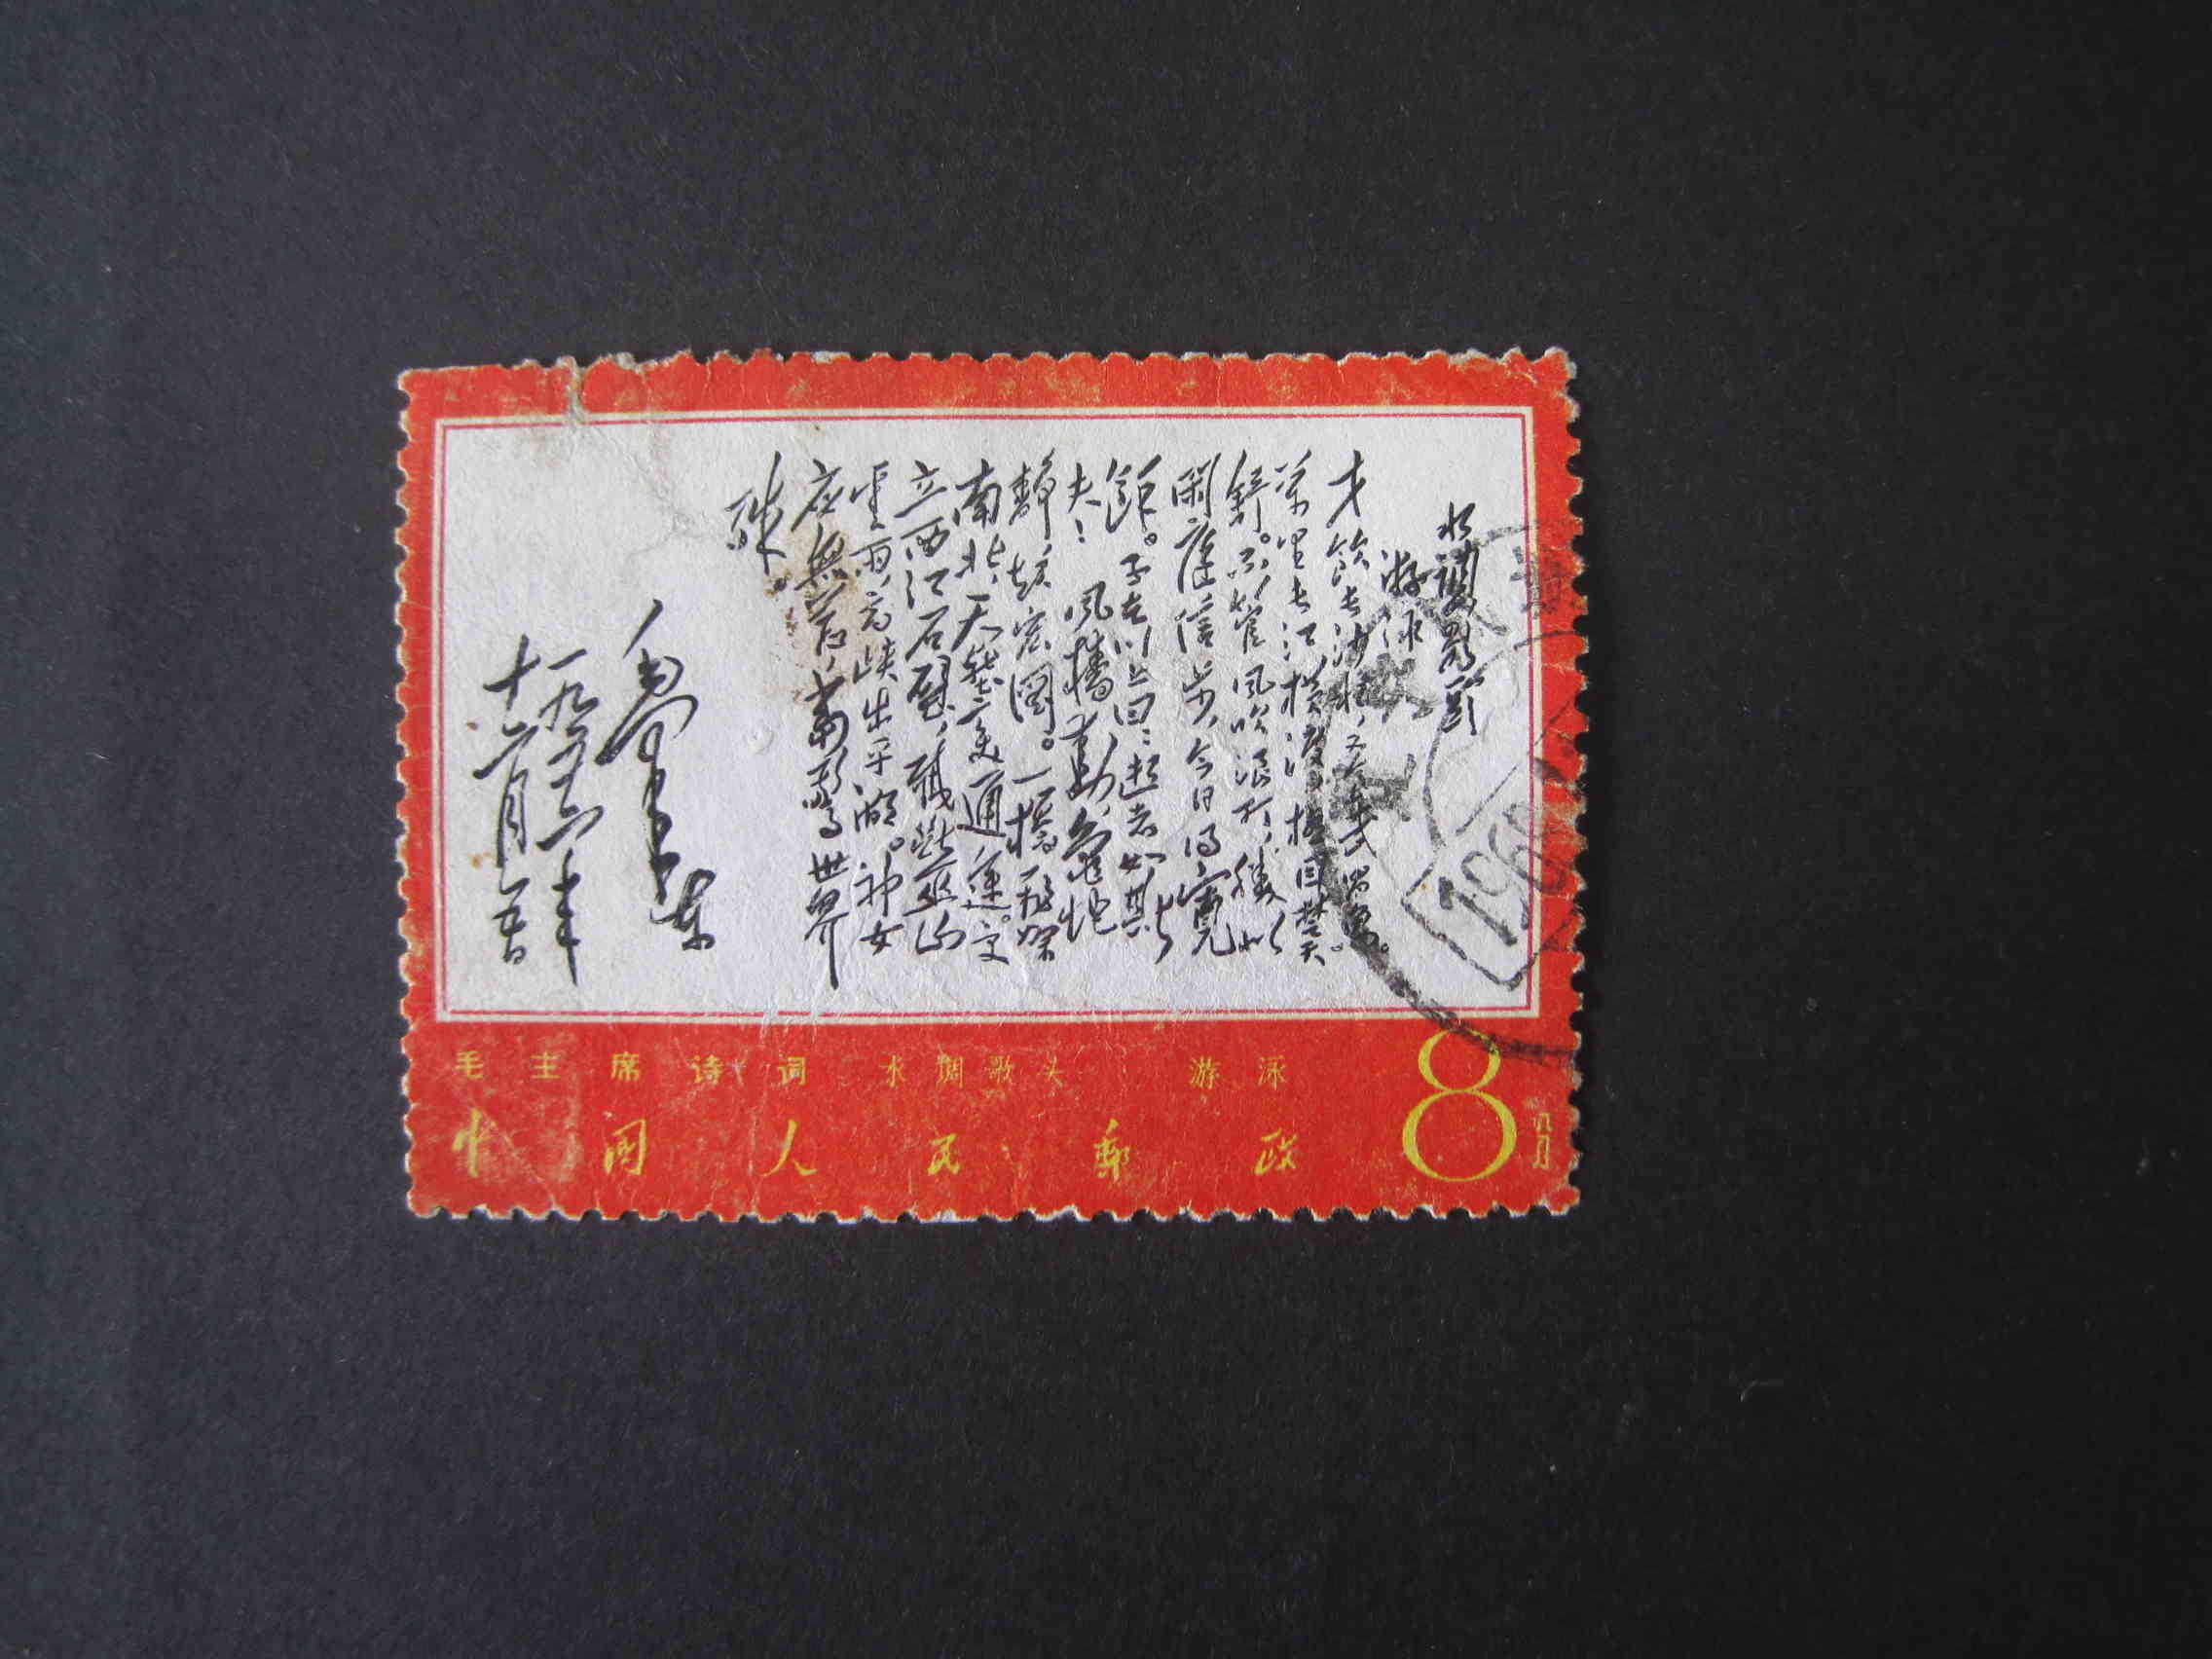 水调歌头
游泳
才饮长沙水，又食武昌鱼。
万里长江横渡，极目楚天
舒。不管风吹浪打，胜似
闲庭信步，今日得宽
馀。子在川上曰：逝者如斯
夫！ 风樯动，龟蛇
静，起宏图。一桥飞架
南北，天堑变通途。更
立西江石壁，截断巫山
云雨，高峡出平湖。神女
应无恙，当惊世界
殊。
毛泽东
一九五六年
十二月五日
毛主席诗词 水调歌头 游泳
中国人民邮政
8
八分
196